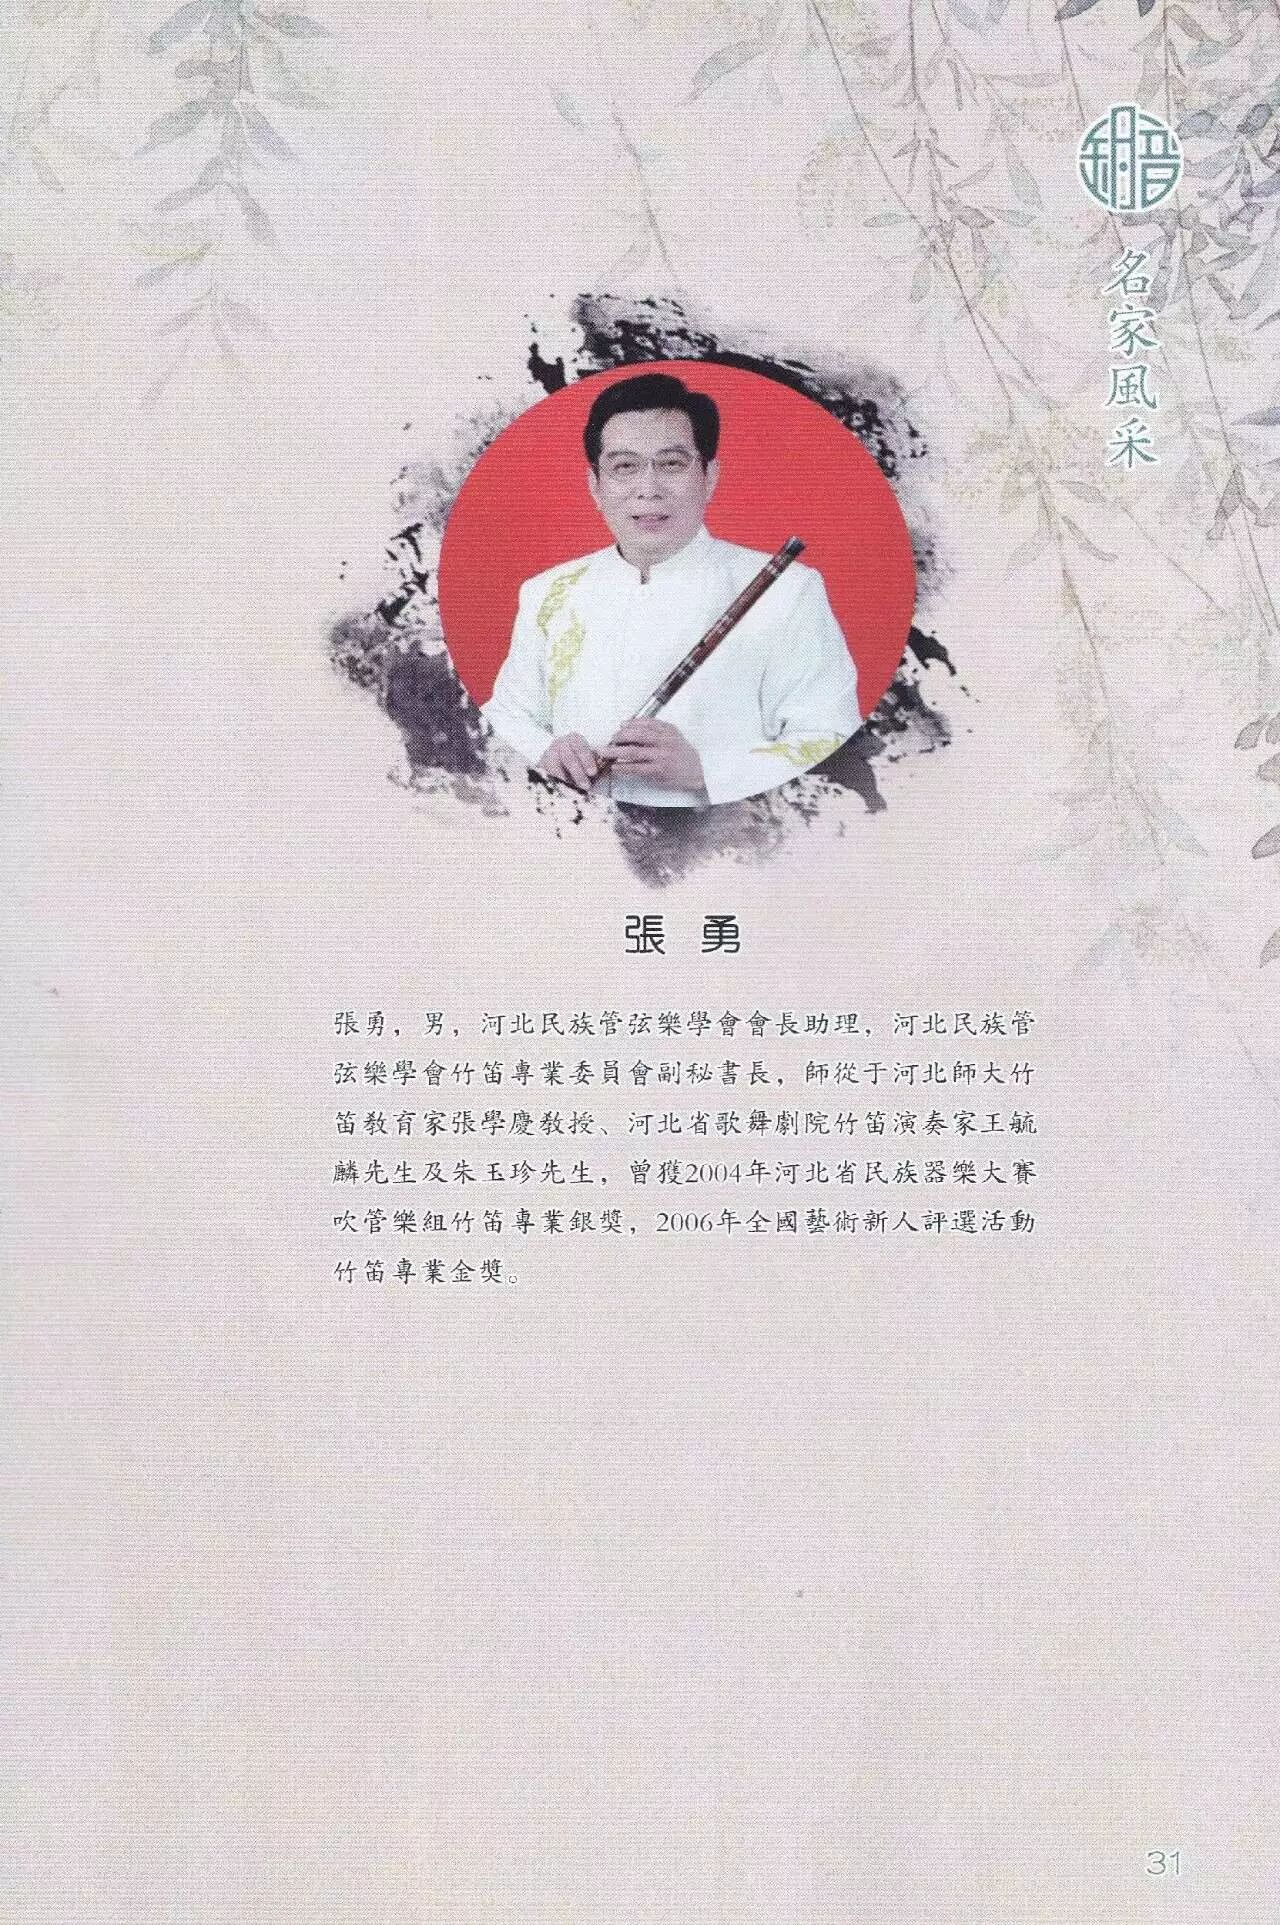 名家風采
張 勇
張勇，男，河北民族管弦樂學會會長助理，河北民族管
弦樂學會竹笛專業委員會副秘書長，師從于河北師大竹
笛教育家張學慶教授、河北省歌舞劇院竹笛演奏家王毓
麟先生及朱玉珍先生，曾獲2004年河北省民族器樂大賽
吹管樂組竹笛專業銀獎，2006年全國藝術新人評選活動
竹笛專業金獎。
31